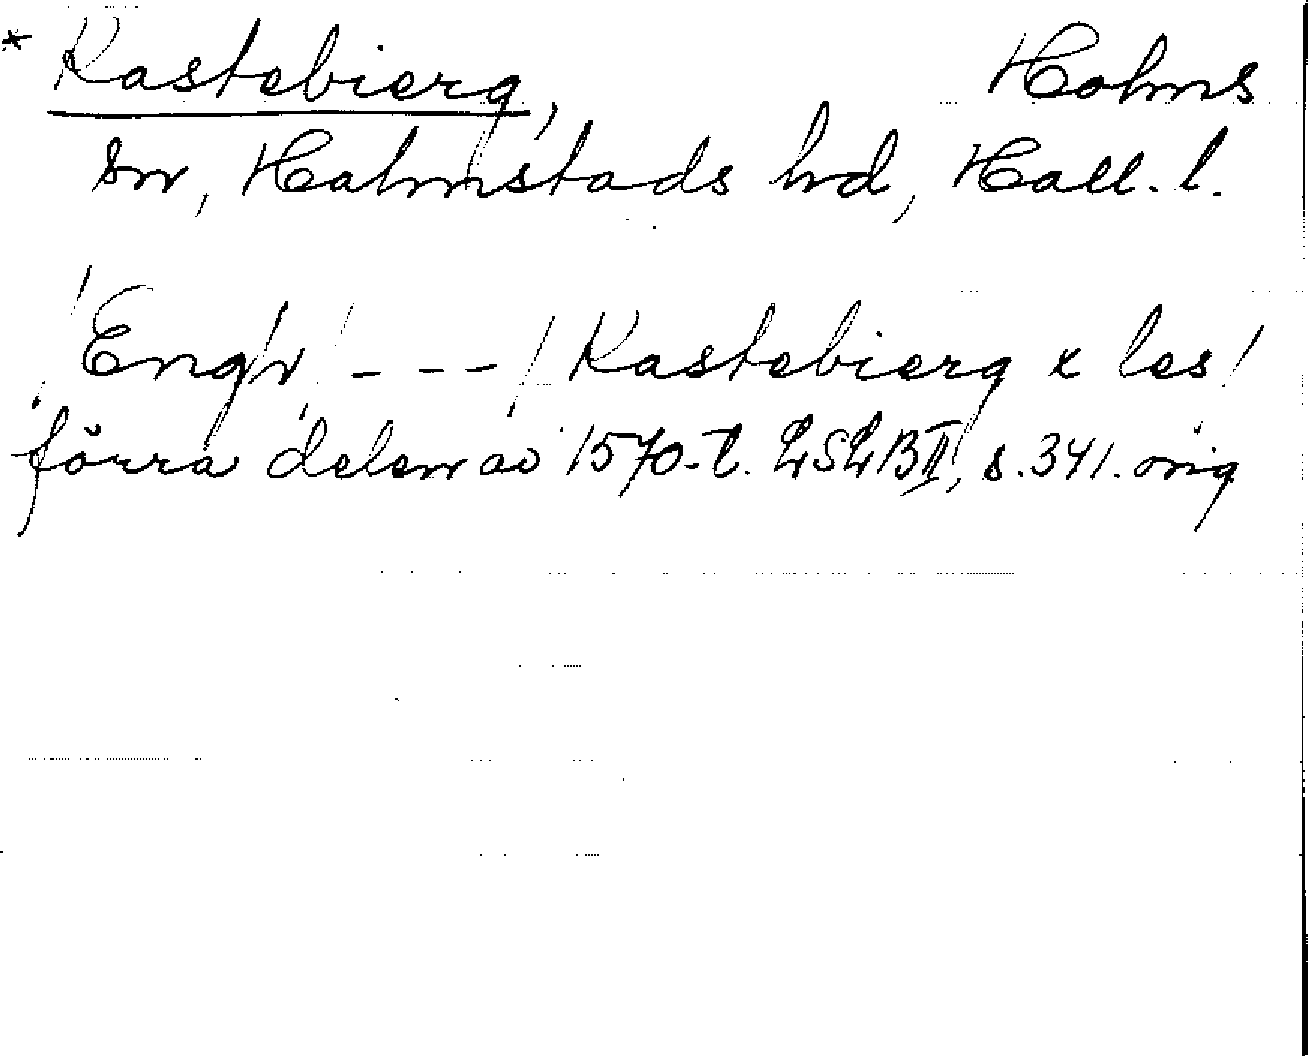 * Kastebierg, Holms
sn, Halmstads hd, Hall. l.
/Engh/ --- / Kastebierg x les/
förra delen av 1570-t. LSLB II, s. 341. orig